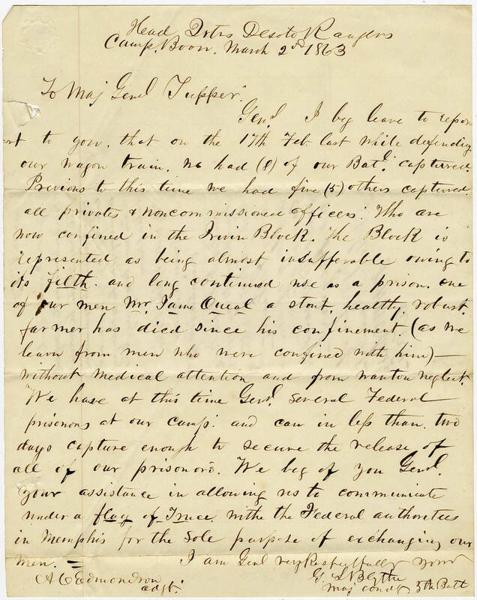 Head Qrtrs Desoto Rangers
Camp Boon March 2nd 1863
To Maj Genl Tupper
Genl I beg leave to repor
ort to you, that on the 17th Feb last while defending
our wagon train, we had (8) of our Batl captured.
Previous to this time we had five (5) others captured
all privates & noncommissioned officers. Who are
now confined in the Irvin Block. The Block is
represented as being almost insufferable owing to
its filth and long continued use as a prison. one
of our men Mr. a stout, healthy, robust
farmer has died since his confinement. (as we
learn from men who were confined with him) —
without medical attention and from wanton neglect.
We have at this time Genl. several Federal
prisoners at our camp. and can in less than two
days capture enough to secure the release of
all of our prisoners. We beg of you Genl.
your assistance in allowing us to communicate
under a flag of Truce with the Federal authorities
in Memphis for the sole purpose of exchanging our
men. — I am Genl very Respectfully yours
A C Edmondson G. L. Blythe
adgt. Maj comdg 5th Batt